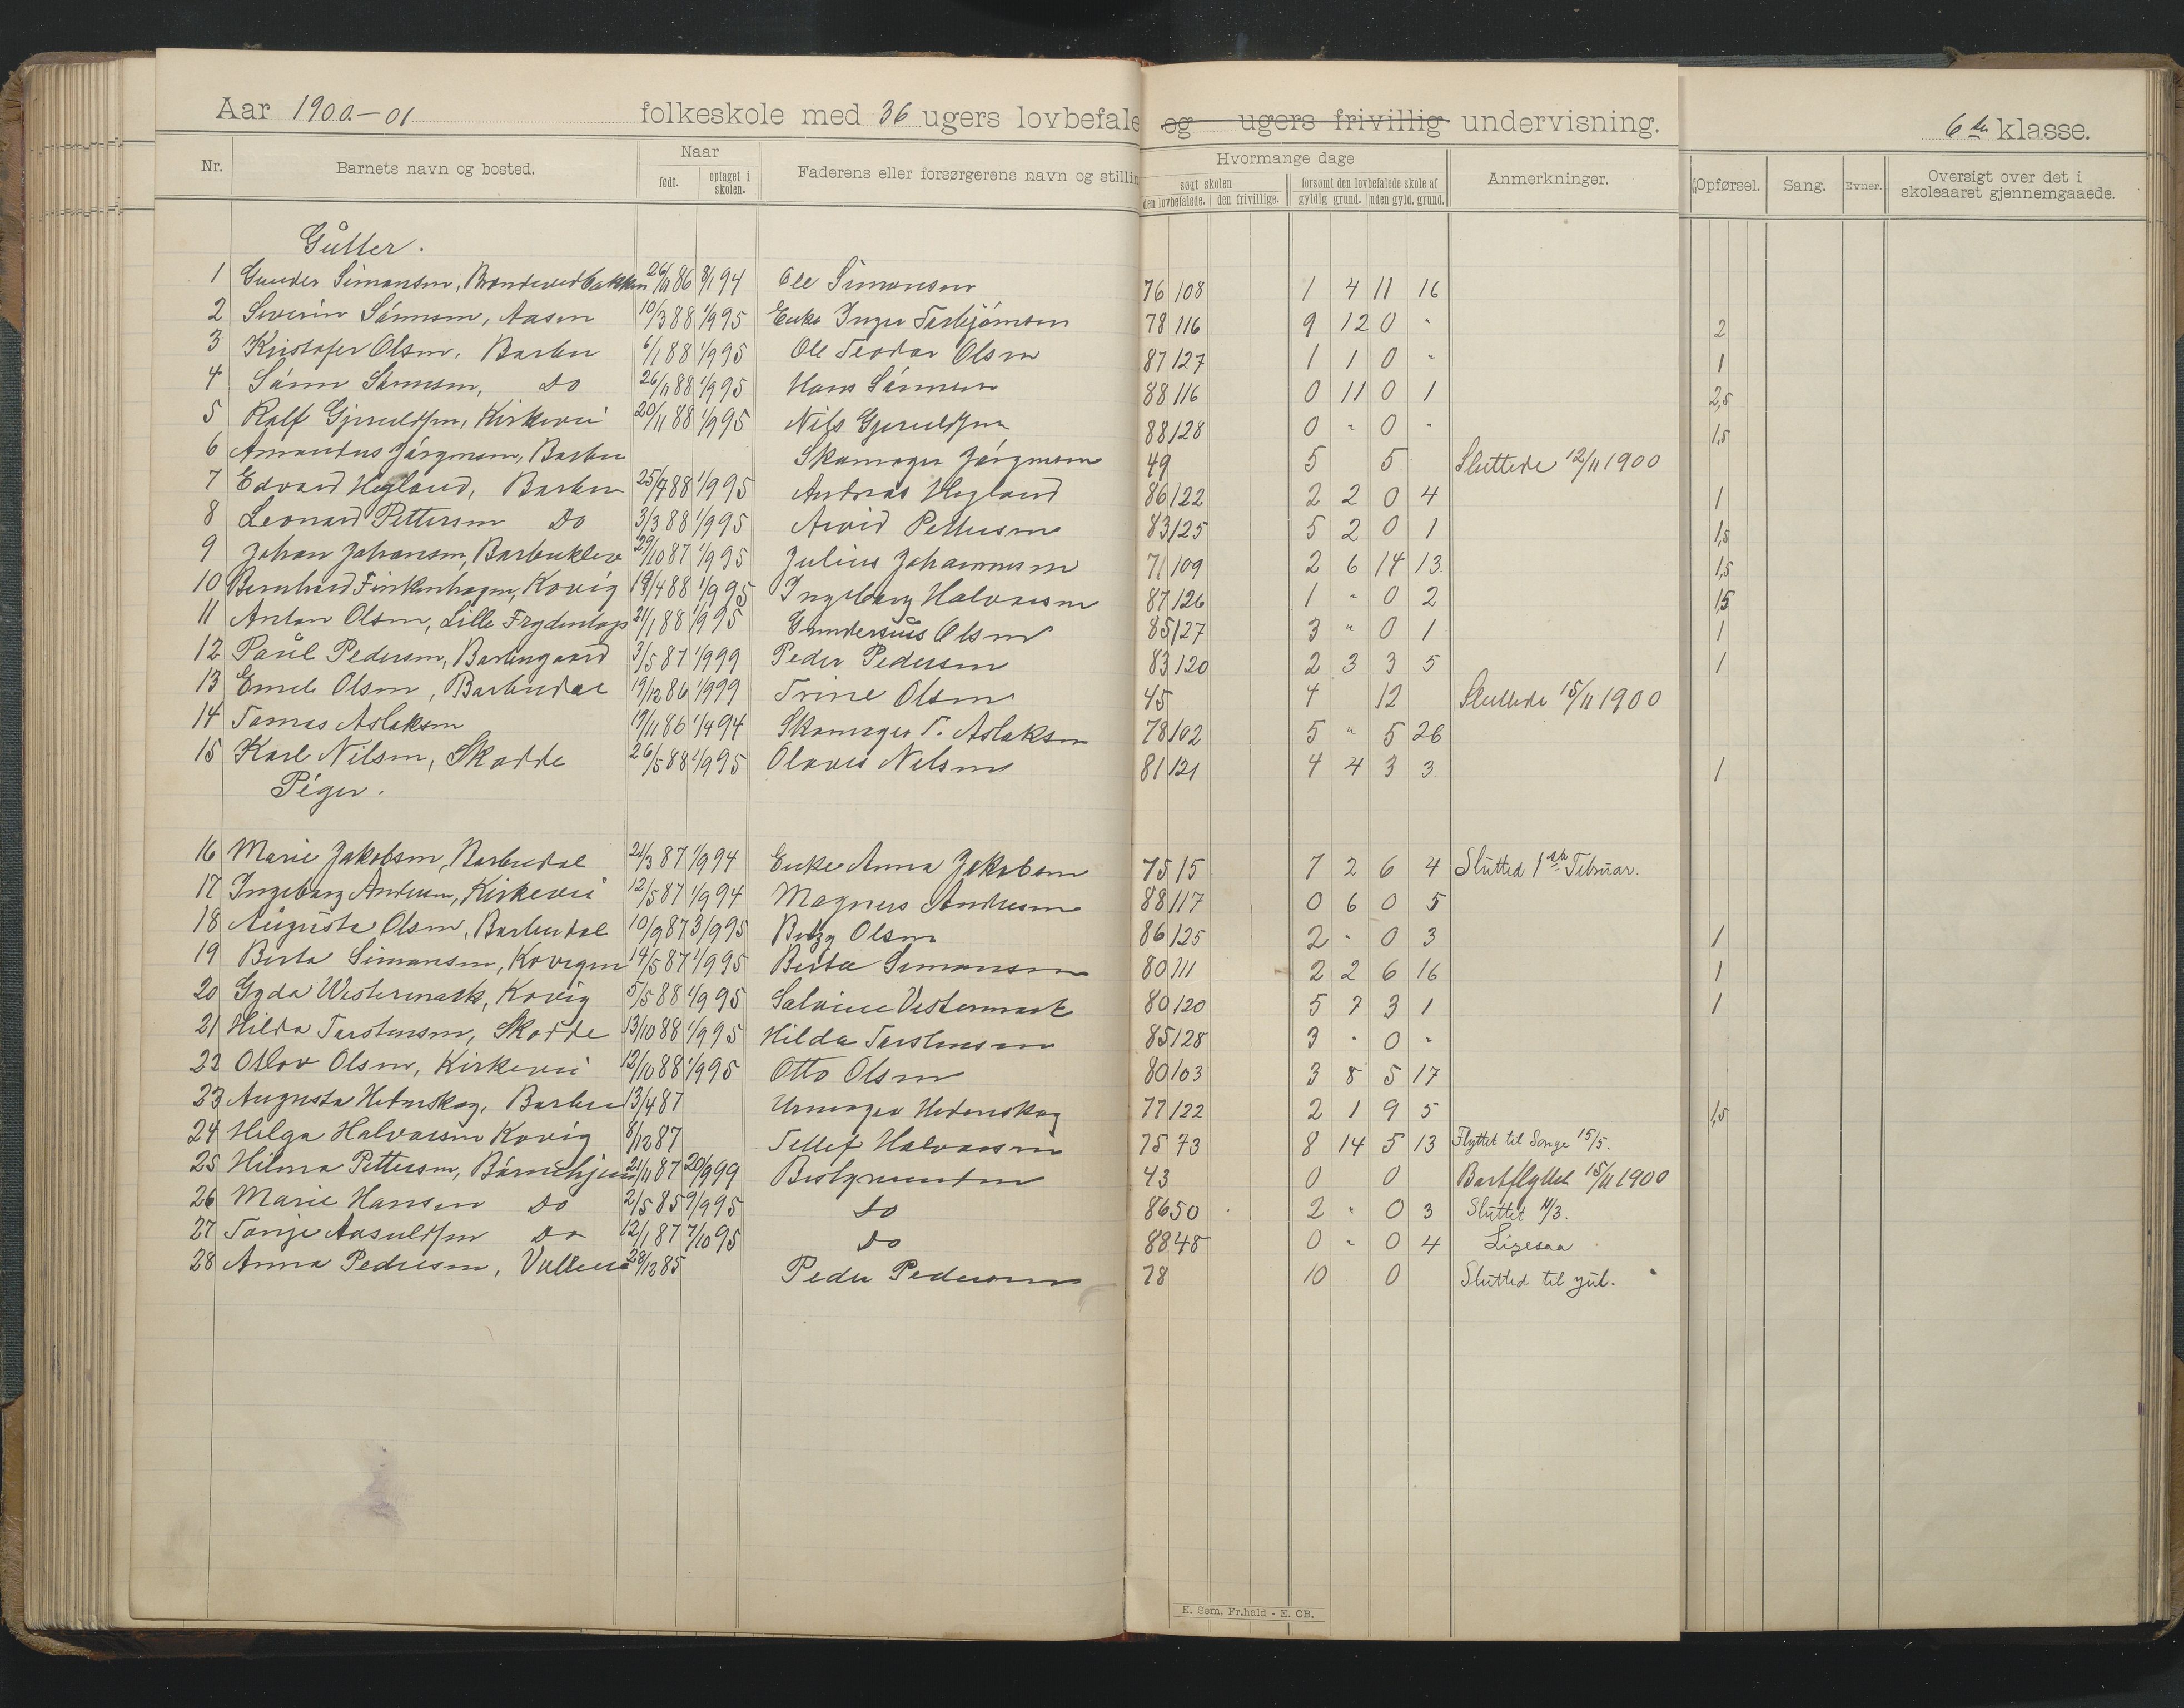 Aar 1900.-01 folkeskole med 36 ugers lovbefale og ugers frivillig undervisning. 6te klasse.
Nr. Barnets navn og bosted. Naar født. optaget i skolen. Faderens eller forsørgerens navn og stillin Hvormange dage søgt skolen den lovbefalede. den frivillige. forsømt den lovbefalede skole af gyldig grund. uden gyld. grund. Anmerkninger. Opførsel. Sang. Evner. Oversigt over det i skoleaaret gjennemgaaede.
Gutter.
1 Gunder Simonsen, 26/11 86 8/1 94 Ole Simonsen 76 108 1 4 11 16
2 Severin Sørensen, Aasen 10/3 88 1/9 95 Enke Inger Torbjørnsen 78 116 9 12 0 " 2
3 Kristofer Olsen, Barbu 6/1 88 1/9 95 Ole Teodor Olsen 87 127 1 1 0 " 1
4 Sørен Sørensen, Do 26/11 88 1/9 95 Hans Sørensen 88 116 0 11 0 1 2,5
5 Rolf Gjeruldsen, Kirkevei 20/11 88 1/9 95 Nils Gjeruldsen 88 128 0 " 0 " 1,5
6 Amandus Jørgensen, Barbu Skomager Jørgensen 49 5 5 Sluttede 12/11 1900
7 Edvard Hegland, Barbu 25/7 88 1/9 95 Andreas Hegland 86 122 2 2 0 4 1
8 Leonard Pettersen Do 3/3 88 1/9 95 Arvid Pettersen 83 125 5 2 0 1 1,5
9 Johan Johansen, Barbuklev 29/10 87 1/9 95 Julius Johannesen 71 109 2 6 14 13 1,5
10 Bernhard Finkenhagen, Kovig 19/4 88 1/9 95 Ingeborg Halvorsen 87 126 1 " 0 2 15
11 Anton Olsen, Lille 21/1 88 1/9 95 Olsen 85 127 3 " 0 1 1
12 Paul Pedersen, Barbugaard 3/5 87 1/9 99 Peder Pedersen 83 120 2 3 3 5 1
13 Emil Olsen, Barbudal 19/12 86 1/9 99 Trine Olsen 45 4 12 Sluttede 15/11 1900
14 Tomas Aslaksen 19/11 86 1/4 94 Skomager T. Aslaksen 78 102 5 " 5 26
15 Karl Nilsen, Skodde 26/5 88 1/9 95 Olaves Nilsen 81 121 4 4 3 3 1
Piger.
16 Marie Jakobsen, Barbudal 21/3 87 1/9 94 Enke Anna Jakobsen 75 15 7 2 6 4 Slutted 1ste Februar.
17 Ingeborg Andersen, Kirkevei 12/5 87 1/9 94 Magnus Andersen 88 117 0 6 0 5
18 Augusta Olsen, Barbudal 10/9 87 3/9 95 Olsen 86 125 2 " 0 3 1
19 Berta Simonsen, Kovigen 14/5 87 1/9 95 Berta Simonsen 80 111 2 2 6 16 1
20 Gyda Westermark, Kovig 5/5 88 1/9 95 Vestermark 80 120 5 7 3 1 1
21 Hilda Torstensen, Skodde 13/10 88 1/9 95 Hilda Torstensen 85 128 3 " 0 "
22 Otlov Olsen, Kirkevei 12/10 88 1/9 95 Otto Olsen 80 103 3 8 5 17
23 Augusta Hedenskog, Barbu 13/4 87 Urmager Hedenskog 77 122 2 1 9 5 1,5
24 Helga Halvorsen Kovig 8/12 87 Tellef Halvorsen 75 73 8 14 5 13 Flyttet til Songe 15/5.
25 Hilma Pettersen, Børnehjem 21/11 87 20/9 99 Bestyrerinden 43 0 0 Bortflyttet 15/11 1900
26 Marie Hansen Do 2/5 85 9/9 95 Do 86 50 2 " 0 3 Sluttet 11/3.
27 Tonje Aasuldsen Do 12/1 87 7/10 95 Do 88 48 0 " 0 4 Ligesaa
28 Anna Pedersen, 28/12 85 Peder Pedersen 78 10 0 Slutted til jul.
E. Sem, Fr.hald - E. CB.